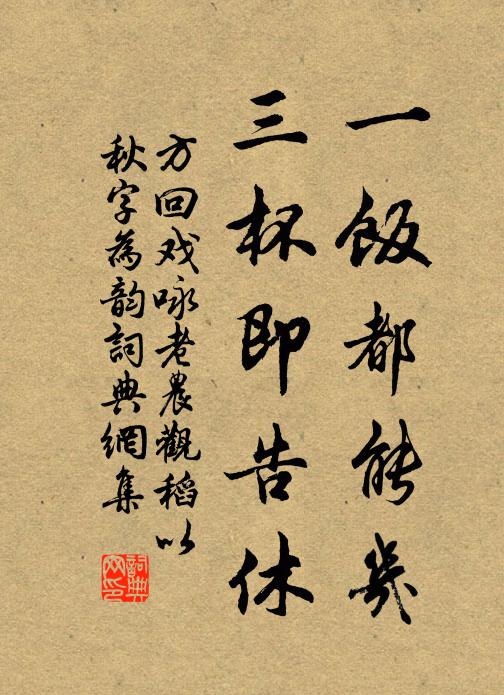 一飯都能幾
三杯即告休
方回戏咏老農觀稻以
秋字為韵詞典網集
詞典
网印